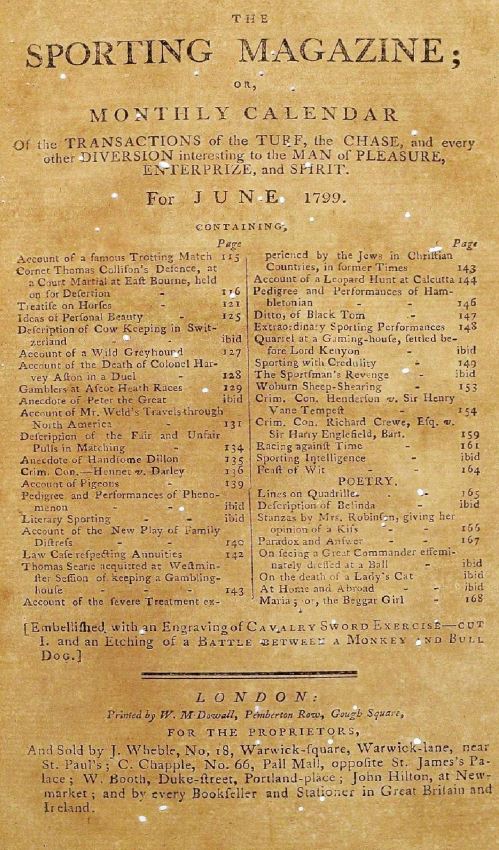 THE
SPORTING MAGAZINE;
OR,
MONTHLY CALENDAR
Of the TRANSACTIONS of the TURF, the CHASE, and every
other DIVERSION interesting to the MAN of PLEASURE,
ENTERPRIZE, and SPIRIT.
For JUNE 1799.
CONTAINING,
Page
Account of a famous Trotting Match 115
Cornet Thomas Collison's Defence, at
a Court Martial at East Bourne, held
on for Desertion - 116
Treatise on Horses - 121
Ideas of Personal Beauty - - 125
Description of Cow Keeping in Swit-
zerland - - ibid
Account of a Wild Greyhound 127
Account of the Death of Colonel Har-
vey Aston in a Duel - - 128
Gamblers at Ascot Heath Races - 129
Anecdote of Peter the Great ibid
Account of Mr. Weld's Travels through
North America - - 131
Description of the Fair and Unfair
Pulls in Matching - - 134
Anecdote of Handsome Dillon 135
Crim. Con.—Hennet v. Darley 136
Account of Pigeons - - 139
Pedigree and Performances of Pheno-
menon - - - ibid
Literary Sporting - - ibid
Account of the New Play of Family
Distress - - - 140
Law Case respecting Annuities 142
Thomas Searle acquitted at Westmin-
ster Session of keeping a Gambling-
house - - - 143
Account of the severe Treatment ex-
Page
perienced by the Jews in Christian
Countries, in former Times 143
Account of a Leopard Hunt at Calcutta 144
Pedigree and Performances of Ham-
bletonian - - 146
Ditto, of Black Tom - 147
Extraordinary Sporting Performances 148
Quarrel at a Gaming-house, settled be-
fore Lord Kenyon - ibid
Sporting with Credulity - 149
The Sportsman's Revenge - ibid
Woburn Sheep-Shearing - 153
Crim. Con. Henderson v. Sir Henry
Vane Tempest - - 154
Crim. Con. Richard Crewe, Esq. v.
Sir Harry Englefield, Bart. 159
Racing against Time - 161
Sporting Intelligence - ibid
Feast of Wit - - 164
POETRY.
Lines on Quadrille - - 165
Description of Belinda - ibid
Stanzas by Mrs. Robinson, giving her
opinion of a Kiss - - 166
Paradox and Answer - 167
On seeing a Great Commander effemi-
nately dressed at a Ball - ibid
On the death of a Lady's Cat ibid
At Home and Abroad - ibid
Maria; or, the Beggar Girl - 168
[Embellished with an Engraving of CAVALRY SWORD EXERCISE—CUT
I. and an Etching of a BATTLE BETWEEN A MONKEY AND BULL
DOG.]
LONDON:
Printed by W. M'Dowall, Pemberton Row, Gough Square,
FOR THE PROPRIETORS,
And Sold by J. Wheble, No, 18, Warwick-square, Warwick-lane, near
St. Paul's; C. Chapple, No. 66, Pall Mall, opposite St. James's Pa-
lace; W. Booth, Duke-street, Portland-place; John Hilton, at New-
market; and by every Bookseller and Stationer in Great Britain and
Ireland.